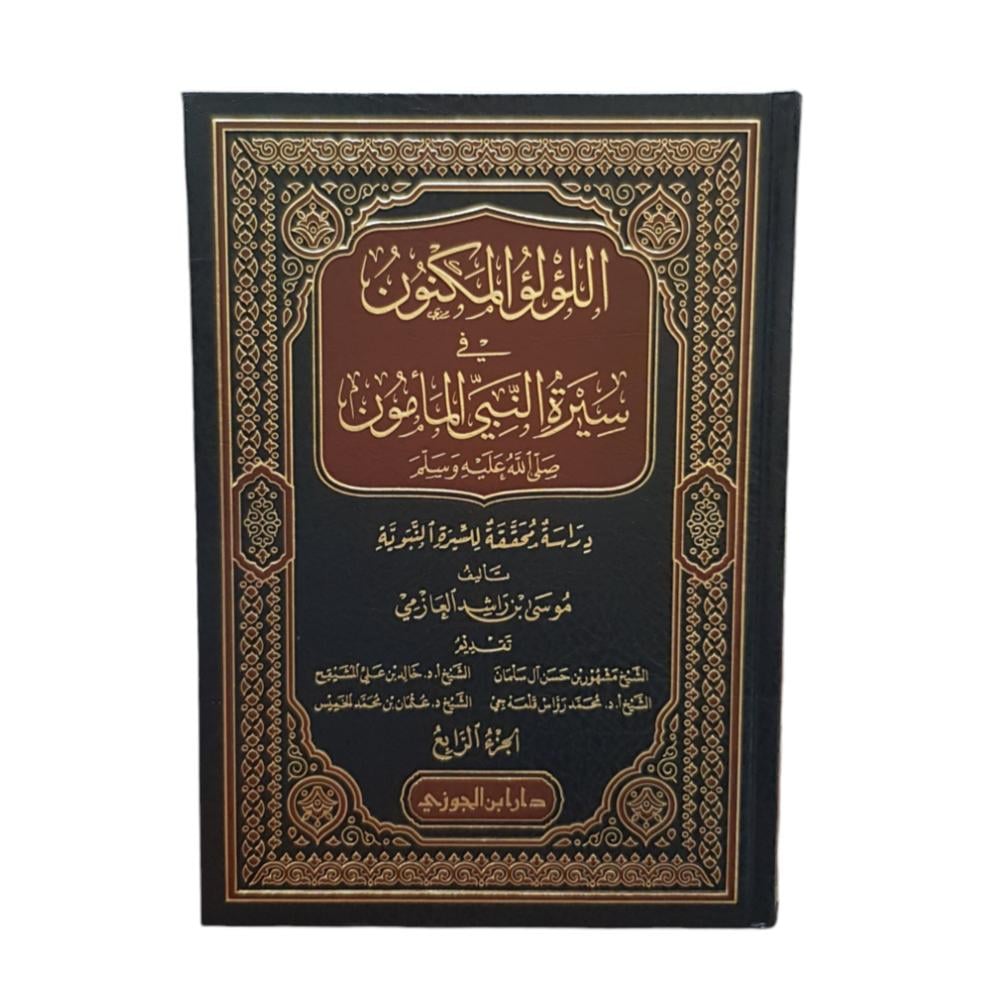 اللؤلؤ المكنون
في
سيرة النبي المأمون
صلى الله عليه وسلم
دراسة محققة للسيرة النبوية
تأليف
موسى بن راشد العازمي
تقديم
الشيخ مشهور بن حسن آل سلمان الشيخ أ.د. خالد بن علي المشيقح
الشيخ أ.د. محمد رواس قلعه جي الشيخ د. عثمان بن محمد الخميس
الجزء الرابع
دار ابن الجوزي